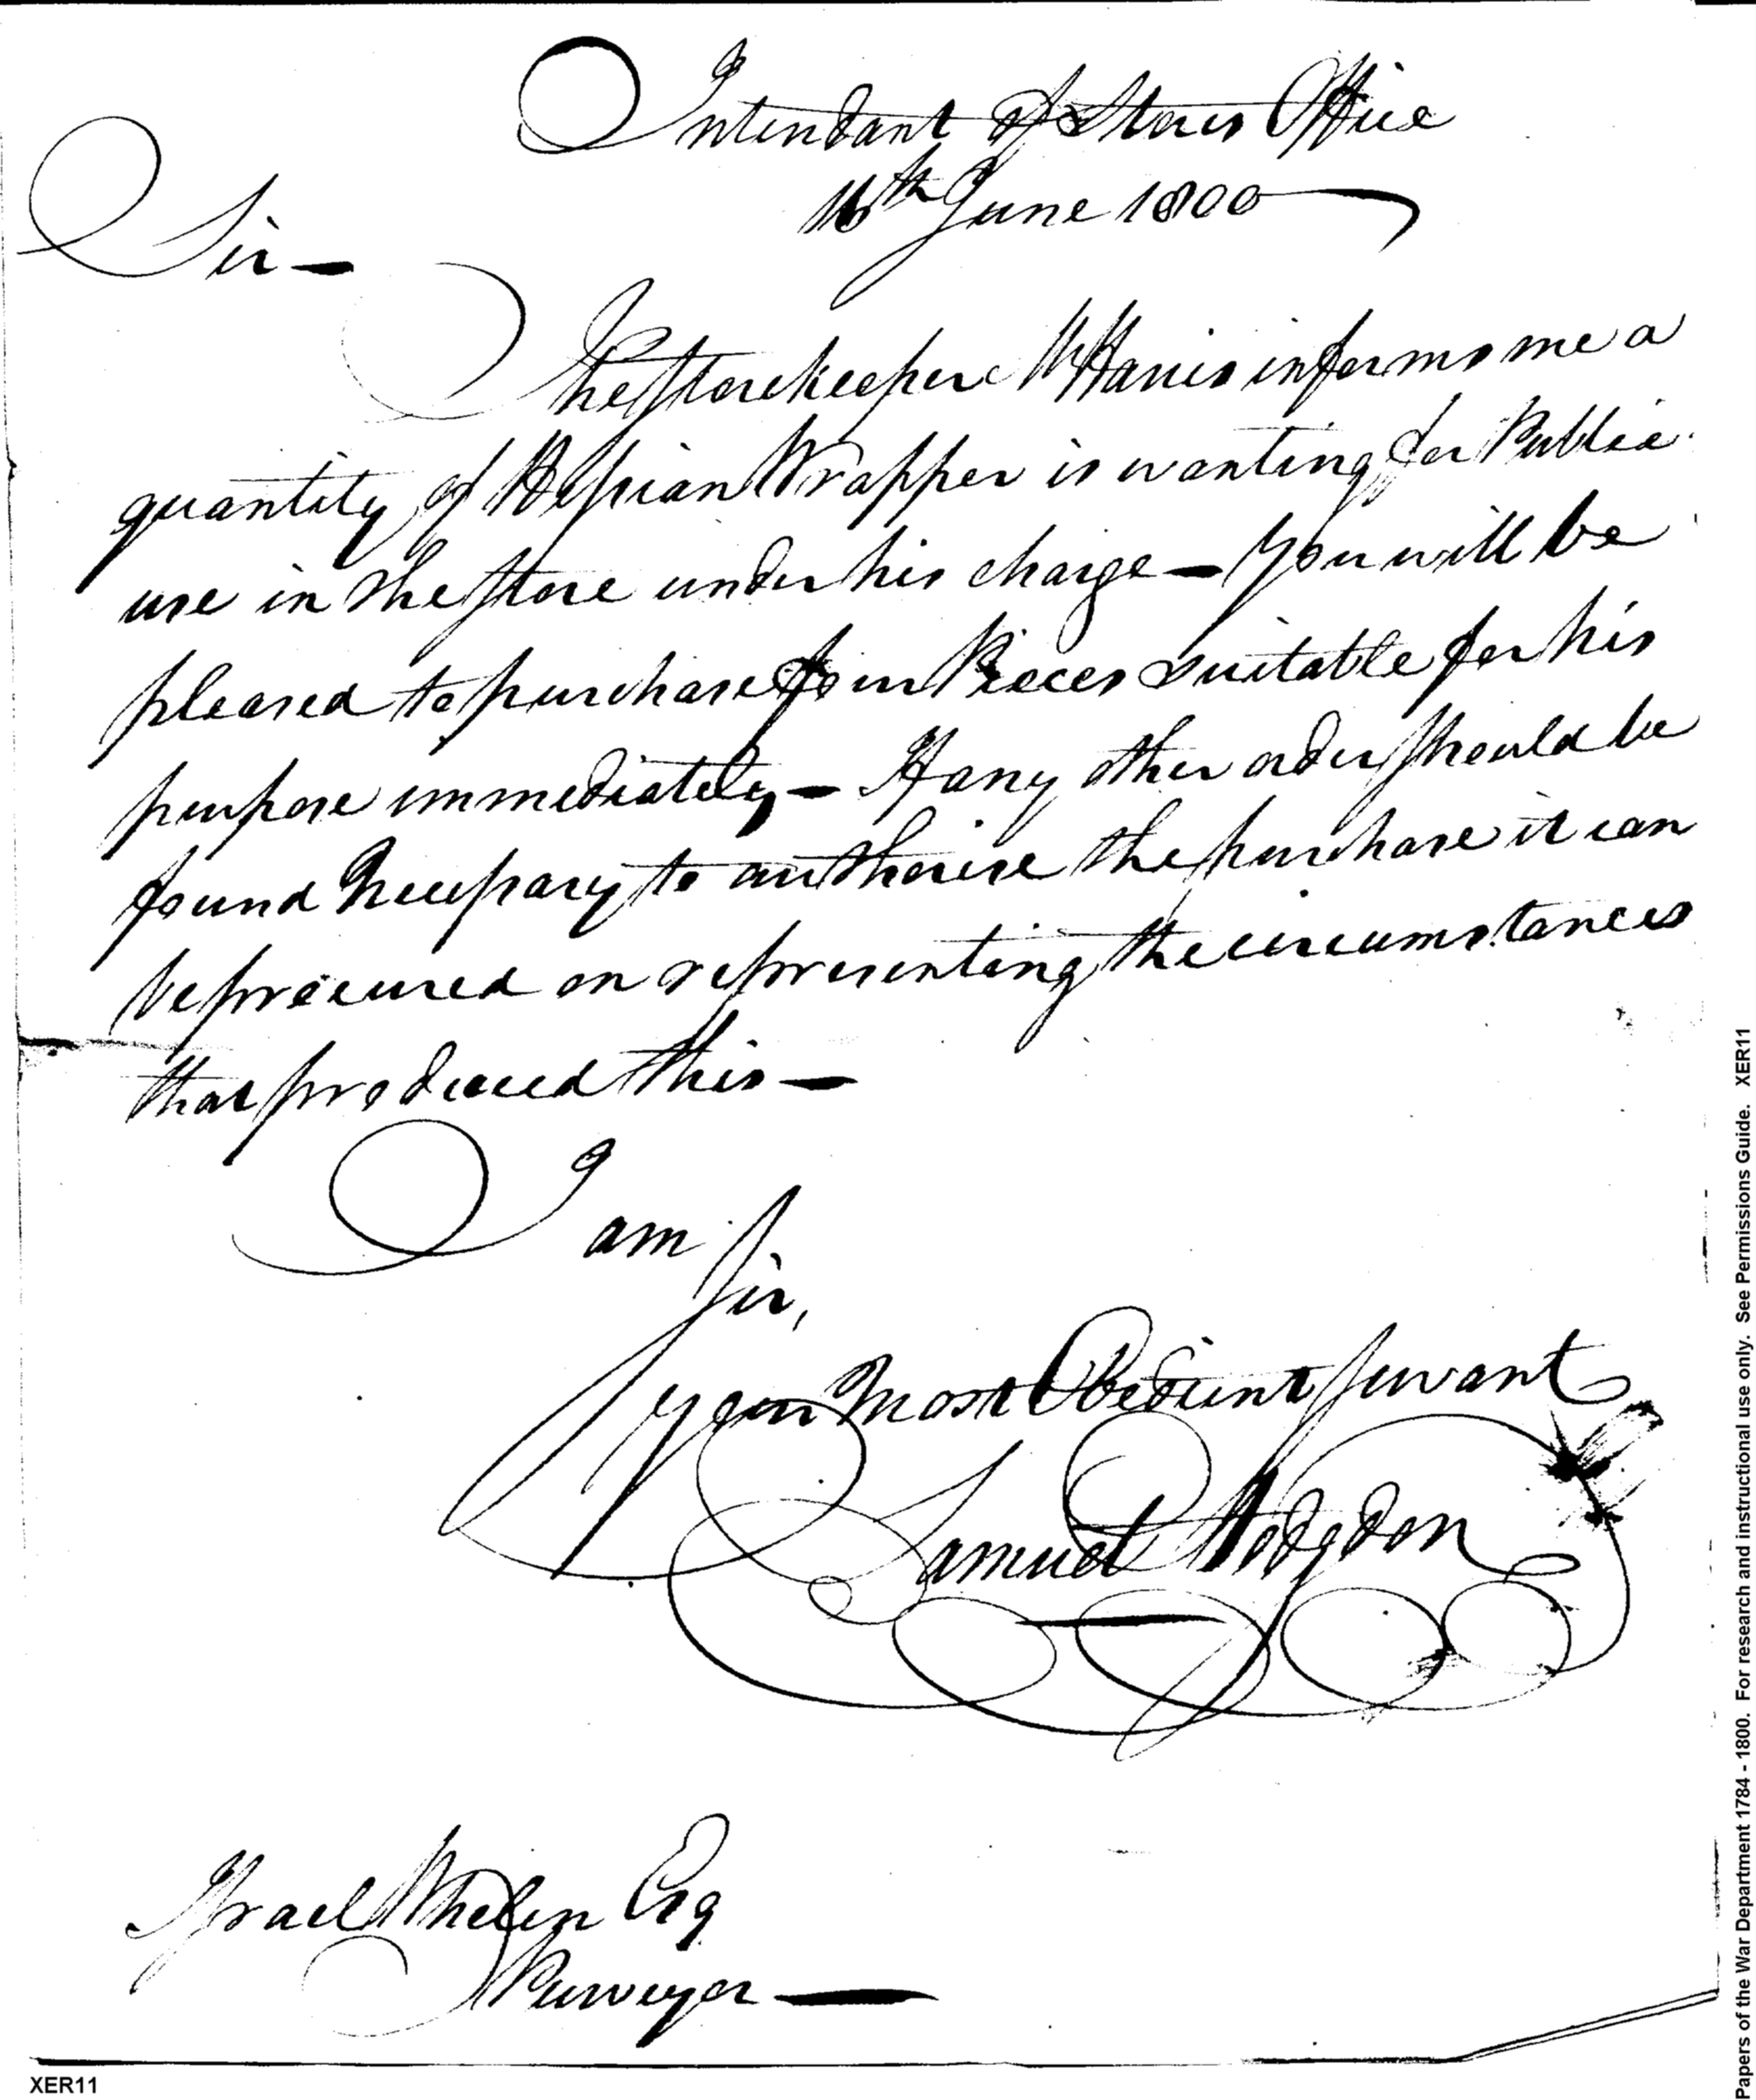 Intendant of Stores Office
16th June 1800
Sir —
The Storekeeper Mr Harris informs me a
quantity of Hessian Wrapper is wanting for Public
use in the Store under his charge — You will be
pleased to purchase four Pieces suitable for his
purpose immediately — If any other order should be
found Necessary to authorise the purchase it can
be procured on representing the circumstances
that produced this —
I am
Sir,
Your Most Obedient Servant
Samuel Hodgdon
Israel Whelen Esq
Purveyor —
XER11
Papers of the War Department 1784 - 1800. For research and instructional use only. See Permissions Guide. XER11